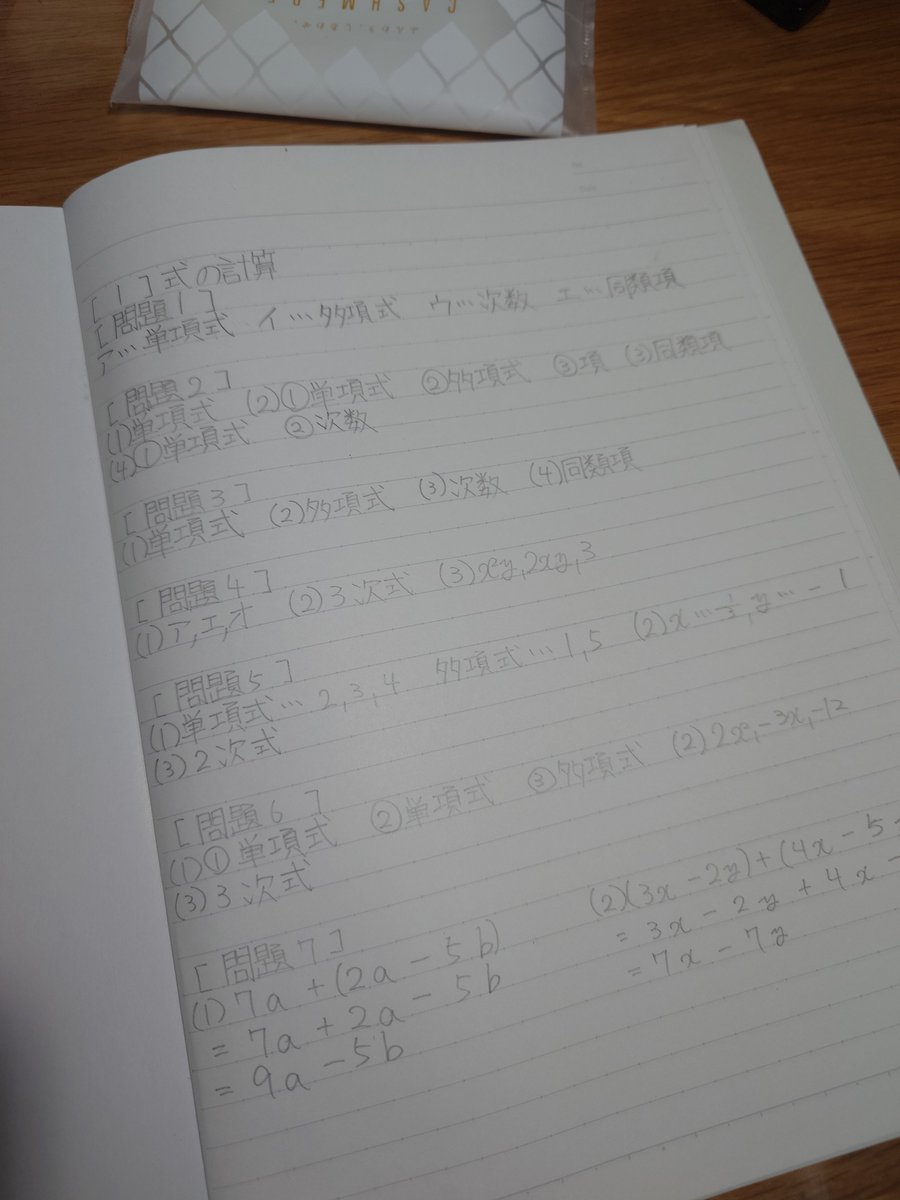 CASHMERE
[1]式の計算
[問題1]
ア…単項式 イ…多項式 ウ…次数 エ…同類項
[問題2]
(1)単項式 (2)①単項式 ②多項式 ③項 (3)同類項
(4)①単項式 ②次数
[問題3]
(1)単項式 (2)多項式 (3)次数 (4)同類項
[問題4]
(1)ア,エ,オ (2)3次式 (3)x²y,2xy,3
[問題5]
(1)単項式…2,3,4 多項式…1,5 (2)x…½,y…-1
(3)2次式
[問題6]
(1)①単項式 ②単項式 ③多項式 (2)2x²,-3x,-12
(3)3次式
[問題7]
(1)7a+(2a-5b)
=7a+2a-5b
=9a-5b
(2)(3x-2y)+(4x-5
=3x-2y+4x-
=7x-7y